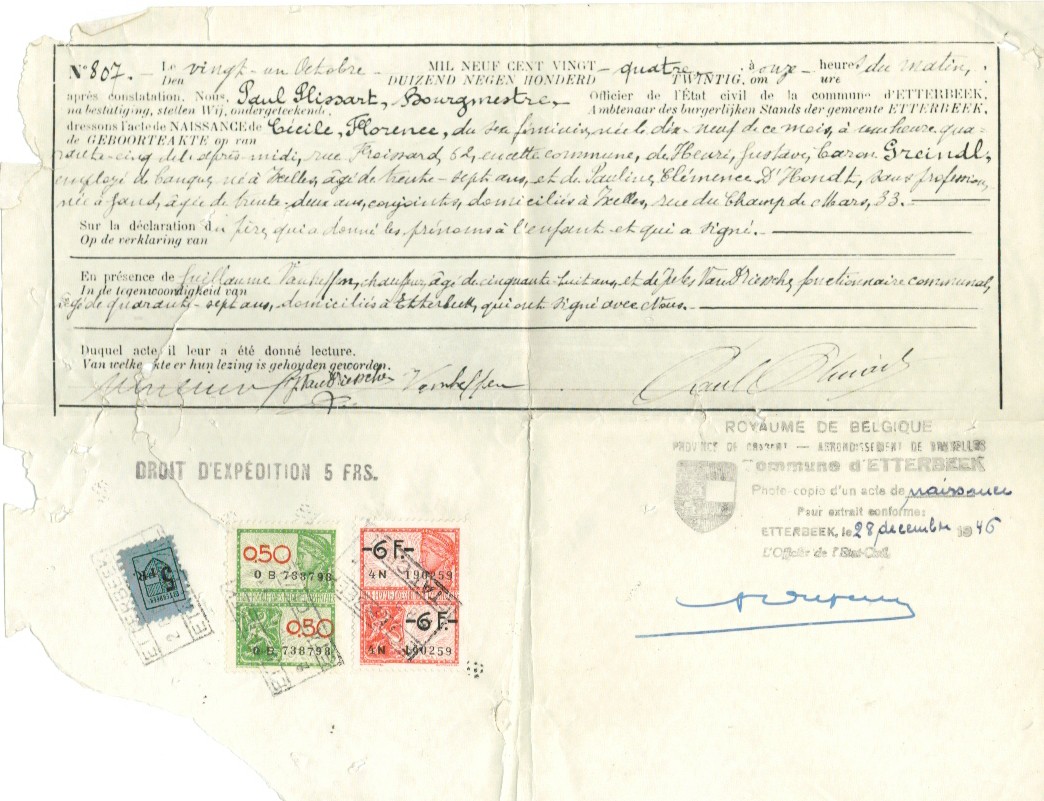 N° 807. - Le vingt-un Octobre - MIL NEUF CENT VINGT - quatre, à onze heures du matin,
Den DUIZEND NEGEN HONDERD TWINTIG, om ure
après constatation. Nous, Paul Plissart, Bourgmestre, Officier de l'État civil de la commune d'ETTERBEEK,
na bestatiging, stellen Wij, ondergeteekende, Ambtenaar des burgerlijken Stands der gemeente ETTERBEEK,
dressons l'acte de NAISSANCE de Cécile, Florence, du sexe féminin, née le dix-neuf de ce mois, à une heure qua-
de GEBOORTEAKTE op van
rante-cinq de l'après-midi, rue Froissard, 62, en cette commune, de Henri, Gustave, baron Greindl,
employé de banque, né à Ixelles, âgé de trente-sept ans, et de Pauline, Clémence D'Hondt, sans profession,
née à Gand, âgée de trente-deux ans, conjoints, domiciliés à Ixelles, rue du Champ de Mars, 33. -
Sur la déclaration du père, qui a donné les prénoms à l'enfant et qui a signé. -
Op de verklaring van
En présence de Guillaume Vanheffen, chauffeur, âgé de cinquante-huit ans, et de Jules Van Driessche, fonctionnaire communal,
In de tegenwoordigheid van
âgé de quarante-sept ans, domiciliés à Etterbeek, qui ont signé avec Nous. -
Duquel acte il leur a été donné lecture.
Van welke akte er hun lezing is gehouden geworden.
J Van Driessche Vanheffen Paul Plissart
ROYAUME DE BELGIQUE
PROVINCE DE BRABANT — ARRONDISSEMENT DE BRUXELLES
Commune d'ETTERBEEK
DROIT D'EXPÉDITION 5 FRS.
Photo-copie d'un acte de naissance
Pour extrait conforme:
ETTERBEEK, le 28 decembre 1946
L'Officier de l'Etat-Civil.
0,50
0 B 738798
0,50
0 B 738798
-6 F.-
4 N 190259
-6 F.-
4 N 190259
5 FR
ETTERBEEK